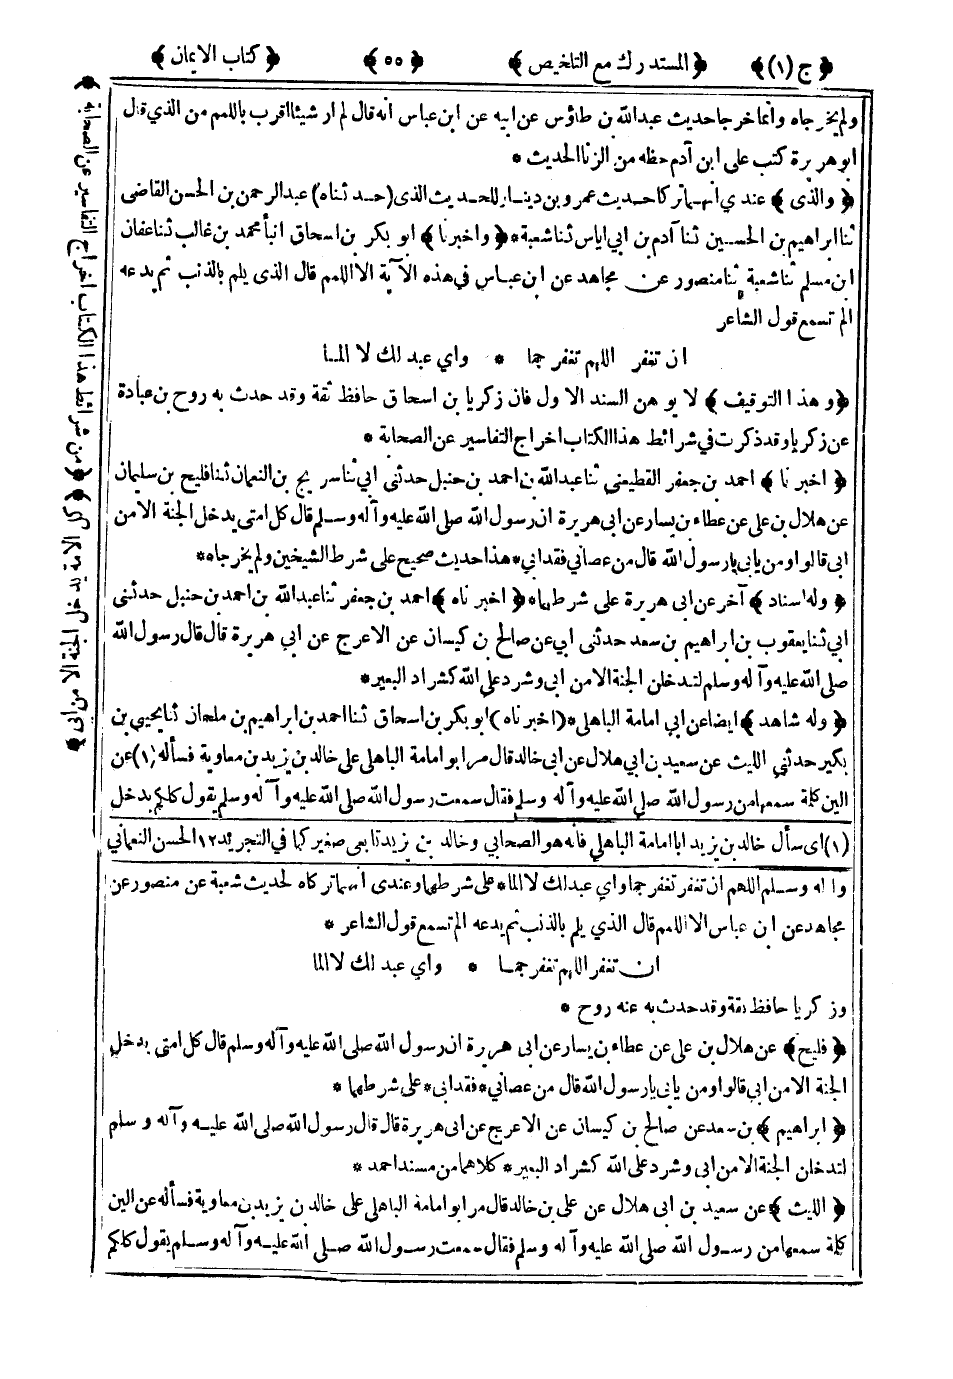 ﴿ ج (١) ﴾ ﴿ المستدرك مع التلخيص ﴾ ﴿ ٥٥ ﴾ ﴿ كتاب الايمان ﴾
ولم يخرجاه وانما اخرجا حديث عبد الله بن طاؤس عن ابيه عن ابن عباس انه قال لم ار شيئا اقرب باللمم من الذي قال
ابو هريرة كتب على ابن آدم حظه من الزنا الحديث *
﴿ والذى ﴾ عندي انهما تركا حديث عمرو بن دينار للحديث الذى (حدثناه) عبد الرحمن بن الحسن القاضى
ثنا ابراهيم بن الحسين ثنا آدم بن ابي اياس ثنا شعبة *﴿ واخبرنا ﴾ ابو بكر بن اسحاق انبأ محمد بن غالب ثنا عفان
ابن مسلم ثنا شعبة ثنا منصور عن مجاهد عن ابن عباس في هذه الآية الا اللمم قال الذى يلم بالذنب ثم يدعه
الم تسمع قول الشاعر
ان تغفر اللهم تغفر جما * واي عبد لك لا الما
﴿ وهذا التوقيف ﴾ لا يوهن السند الاول فان زكريا بن اسحاق حافظ ثقة وقد حدث به روح بن عبادة
عن زكريا وقد ذكرت في شرائط هذا الكتاب اخراج التفاسير عن الصحابة *
﴿ اخبرنا ﴾ احمد بن جعفر القطيعي ثنا عبد الله بن احمد بن حنبل حدثني ابي ثنا سريج بن النعمان ثنا فليح بن سليمان
عن هلال بن على عن عطاء بن يسار عن ابى هريرة ان رسول الله صلى الله عليه وآله وسلم قال كل امتى يدخل الجنة الا من
ابى قالوا ومن يابى يا رسول الله قال من عصاني فقد ابى * هذا حديث صحيح على شرط الشيخين ولم يخرجاه *
﴿ وله اسناد ﴾ آخر عن ابى هريرة على شرطهما *﴿ اخبرناه ﴾ احمد بن جعفر ثنا عبد الله بن احمد بن حنبل حدثنى
ابي ثنا يعقوب بن ابراهيم بن سعد حدثنى ابي عن صالح بن كيسان عن الاعرج عن ابي هريرة قال قال رسول الله
صلى الله عليه وآله وسلم لتدخلن الجنة الا من ابى وشرد على الله كشراد البعير *
﴿ وله شاهد ﴾ ايضا عن ابي امامة الباهلي *(اخبرناه) ابو بكر بن اسحاق ثنا احمد بن ابراهيم بن ملحان ثنا يحيى بن
بكير حدثنى الليث عن سعيد بن ابي هلال عن ابى خالد قال مر ابو امامة الباهلي على خالد بن يزيد بن معاوية فسأله (١) عن
الين كلمة سمعها من رسول الله صلى الله عليه وآله وسلم فقال سمعت رسول الله صلى الله عليه وآله وسلم يقول كلكم يدخل
(١) اى سأل خالد بن يزيد ابا امامة الباهلي فانه هو الصحابي وخالد بن يزيد تابعى صغير كما في التجريد ١٢ الحسن النعماني
وآله وسلم اللهم ان تغفر تغفر جما واي عبد لك لا الما * على شرطهما وعندى انهما تركاه لحديث شعبة عن منصور عن
مجاهد عن ابن عباس الا اللمم قال الذي يلم بالذنب ثم يدعه الم تسمع قول الشاعر *
ان تغفر اللهم تغفر جما * واي عبد لك لا الما
وزكريا حافظ ثقة وقد حدث به عنه روح *
﴿ فليح ﴾ عن هلال بن على عن عطاء بن يسار عن ابى هريرة ان رسول الله صلى الله عليه وآله وسلم قال كل امتى يدخل
الجنة الا من ابى قالوا ومن يابى يا رسول الله قال من عصاني * فقد ابى * على شرطهما *
﴿ ابراهيم ﴾ بن سعد عن صالح بن كيسان عن الاعرج عن ابى هريرة قال قال رسول الله صلى الله عليه وآله وسلم
لتدخلن الجنة الا من ابى وشرد على الله كشراد البعير * كلاهما من مسند احمد *
﴿ الليث ﴾ عن سعيد بن ابى هلال عن على بن خالد قال مر ابو امامة الباهلي على خالد بن يزيد بن معاوية فسأله عن الين
كلمة سمعها من رسول الله صلى الله عليه وآله وسلم فقال سمعت رسول الله صلى الله عليه وآله وسلم يقول كلكم
﴿ من شرائط هذا الكتاب اخراج التفاسير عن الصحابة ﴾
الجنة الا من ابى ﴾